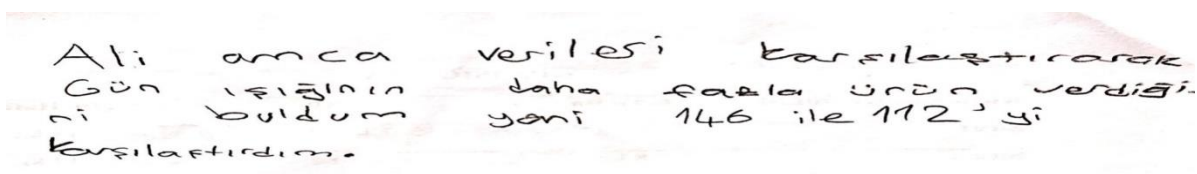 Ali amca verileri karşılaştırarak
Gün ışığının daha fazla ürün verdiği-
ni buldum yani 146 ile 112'yi
karşılaştırdım.